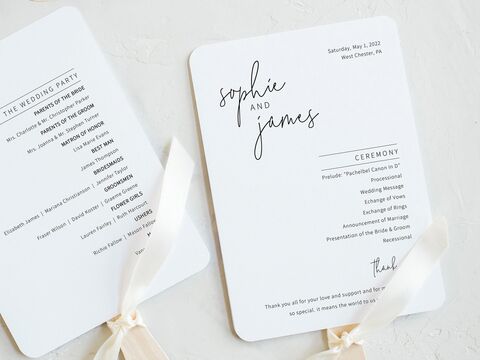 THE WEDDING PARTY
PARENTS OF THE BRIDE
Mrs. Charlotte & Mr. Christopher Parker
PARENTS OF THE GROOM
Mrs. Joanna & Mr. Stephen Turner
MATRON OF HONOR
Lisa Marie Evans
BEST MAN
James Thompson
BRIDESMAIDS
Elizabeth James | Mariana Christianson | Jennifer Taylor
GROOMSMEN
Fraser Wilson | David Koster | Graeme Greene
FLOWER GIRLS
Lauren Fairley | Ruth Harcourt
USHERS
Richie Fallow | Mason Fallow
Saturday, May 1, 2022
West Chester, PA
sophie
AND
james
CEREMONY
Prelude: "Pachelbel Canon in D"
Processional
Wedding Message
Exchange of Vows
Exchange of Rings
Announcement of Marriage
Presentation of the Bride & Groom
Recessional
thank
Thank you all for your love and support and for m
so special. it means the world to us